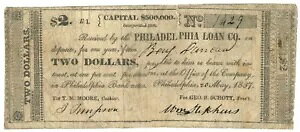 $2.
CAPITAL $500,000.
No 1829
Received by the
PHILADELPHIA LOAN CO.
deposite, for one year, from Benj Duncan
TWO DOLLARS, payable to him or
at the Office of the Company,
in Philadelphia Bank notes. Philadelphia, 20 May 1837.
For T. M. MOORE, Cashier.
For GEO. B. SCHOTT, Pres't.
J Simpson
Wm Stephens
TWO DOLLARS.
TWO DOLLARS.